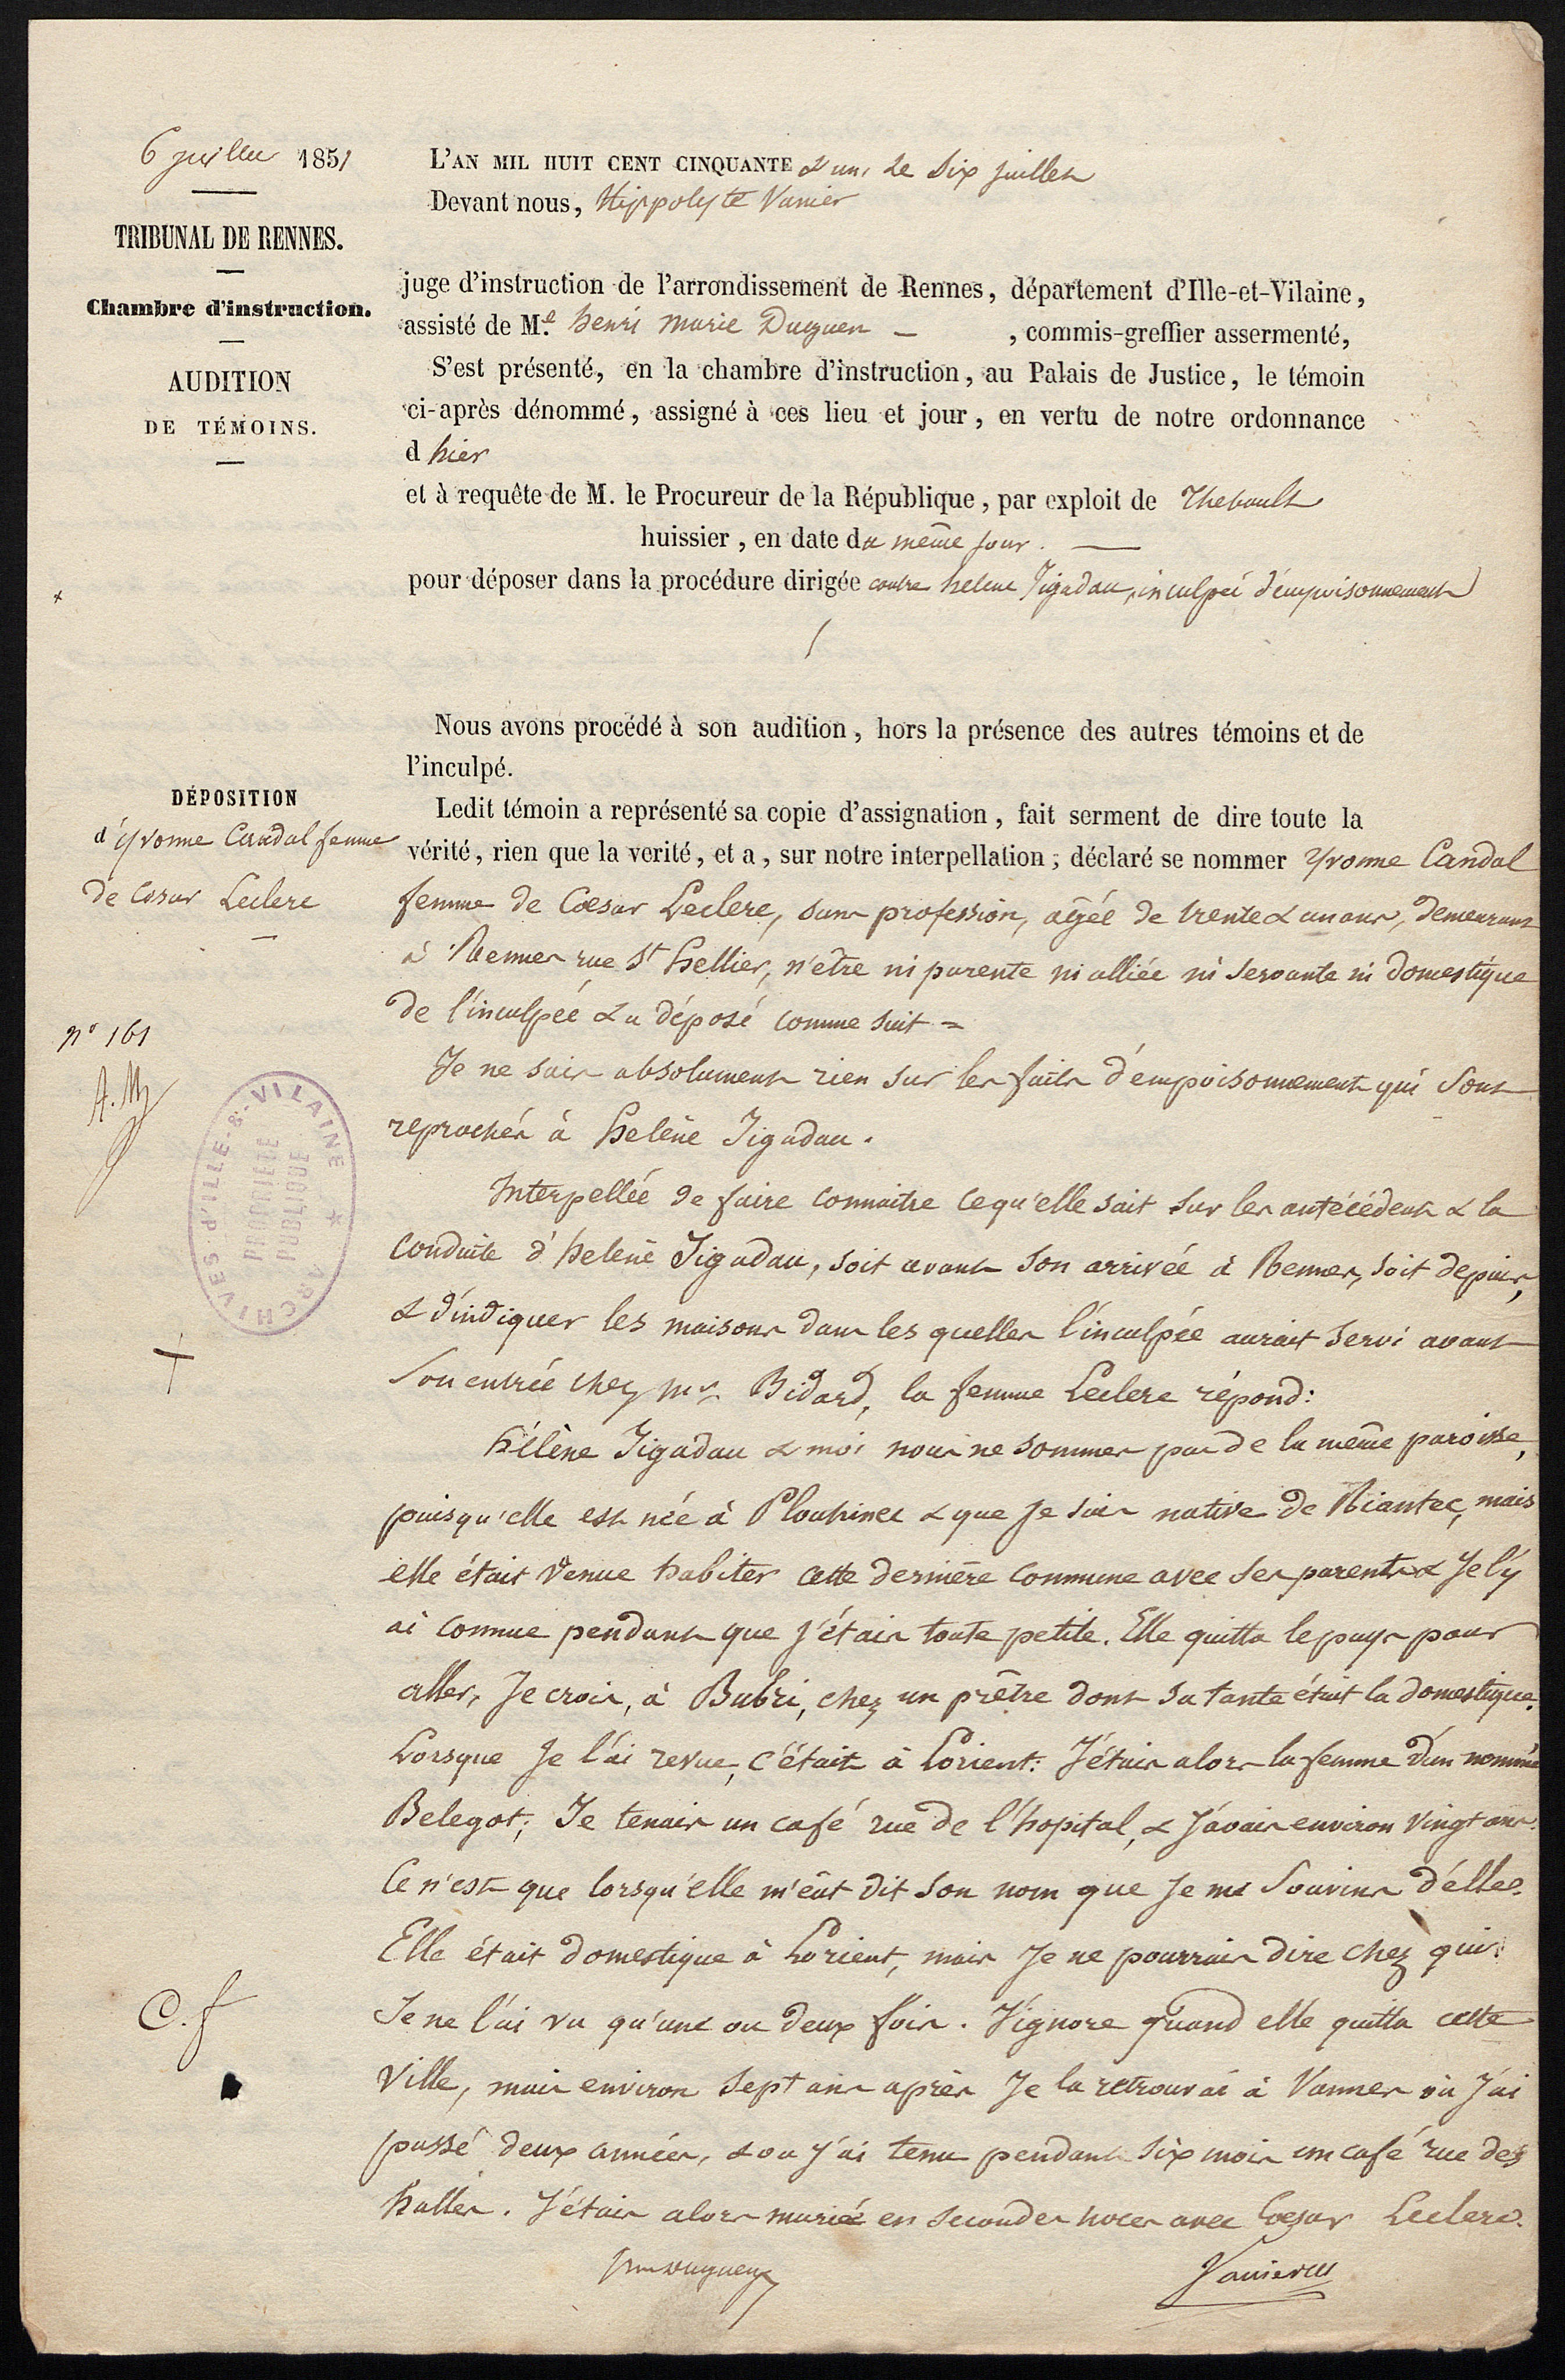 6 juillet 1851
TRIBUNAL DE RENNES.
Chambre d'instruction.
AUDITION
DE TÉMOINS.
L'AN MIL HUIT CENT CINQUANTE & un, le six juillet
Devant nous, Hippolyte Vanier
juge d'instruction de l'arrondissement de Rennes, département d'Ille-et-Vilaine,
assisté de Me. henri marie Duguen — , commis-greffier assermenté,
S'est présenté, en la chambre d'instruction, au Palais de Justice, le témoin
ci-après dénommé, assigné à ces lieu et jour, en vertu de notre ordonnance
d hier
et à requête de M. le Procureur de la République, par exploit de Thebault
huissier, en date du même jour. —
pour déposer dans la procédure dirigée contre helene Jigadau, inculpée d'empoisonnement
Nous avons procédé à son audition, hors la présence des autres témoins et de
l'inculpé.
DÉPOSITION
d'yvonne Candal femme
de Cœsar Leclerc
n° 161
A.M
ARCHIVES d'ILLE-&-VILAINE
PROPRIÉTÉ
PUBLIQUE
Ledit témoin a représenté sa copie d'assignation, fait serment de dire toute la
vérité, rien que la verité, et a, sur notre interpellation, déclaré se nommer Yvonne Candal
femme de Cœsar Leclerc, sans profession, agée de trente & un ans, demeurant
à Rennes rue St hellier, n'être ni parente ni alliée ni servante ni domestique
de l'inculpée & a déposé comme suit =
Je ne sais absolument rien sur les faits d'empoisonnement qui sont
reprochés à helène Jigadau.
Interpellée de faire connaitre ce qu'elle sait sur les antécédents & la
conduite d'helene Jigadau, soit avant son arrivée à Rennes, soit depuis,
& d'indiquer les maisons dans les quelles l'inculpée aurait servi avant
son entrée chez mr Bidard, la femme Leclerc répond:
hélène Jigadau & moi nous ne sommes pas de la même paroisse,
puisqu'elle est née à Plouhinec & que je suis native de Riantec, mais
elle était venue habiter cette dernière commune avec ses parents & je l'y
ai connue pendant que j'étais toute petite. Elle quitta le pays pour
aller, je crois, à Bubri, chez un prêtre dont sa tante était la domestique.
Lorsque je l'ai revue, c'était à Lorient: J'étais alors la femme d'un nommé
Belegot; Je tenais un café rue de l'hopital, & j'avais environ vingt ans.
Ce n'est que lorsqu'elle m'eût dit son nom que je me souvins d'elle.
Elle était domestique à Lorient, mais je ne pourrais dire chez qui.
Je ne l'ai vu qu'une ou deux fois. J'ignore quand elle quitta cette
ville, mais environ sept ans après je la retrouvai à Vannes où j'ai
passé deux années, & ou j'ai tenu pendant six mois un café rue des
halles. J'étais alors mariée en secondes noces avec Cœsar Leclerc.
C.f
Duguen
Vanier